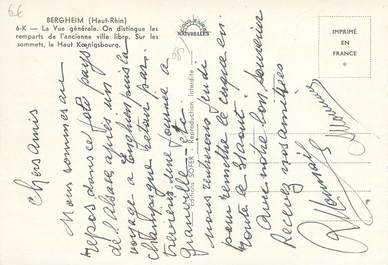 6€
BERGHEIM (Haut-Rhin)
6-K — La Vue générale. On distingue les
remparts de l'ancienne ville libre. Sur
les sommets, le Haut Kœnigsbourg.
NATURELLES
IMPRIMÉ
EN
FRANCE
Editions SOFER - Reproduction interdite
Chers amis
Nous sommes au
repos dans ce joli pays
de l'Alsace après un
voyage à Enghien puis la
Champagne retour par
travers une journée à
Granville
nous rentrerons jeudi
pour remettre le
route le
Avec notre bon souvenir
Recevez nos amitiés